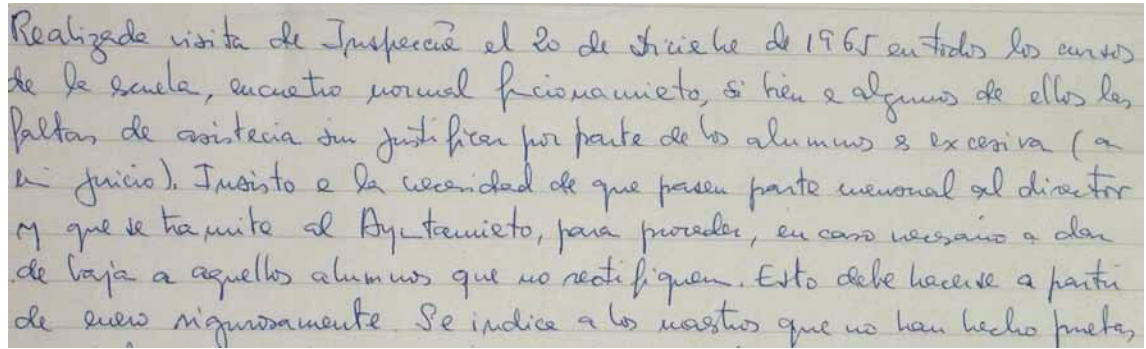 Realizada visita de Inspección el 20 de diciembre de 1965 en todos los cursos
de la escuela, encuentro normal funcionamiento, si bien en algunos de ellos las
faltas de asistencia sin justificar por parte de los alumnos es excesiva (a
mi juicio). Insisto en la necesidad de que pasen parte mensual al director
y que se tramite al Ayuntamiento, para proceder, en caso necesario a dar
de baja a aquellos alumnos que no rectifiquen. Esto debe hacerse a partir
de enero rigurosamente. Se indica a los maestros que no han hecho